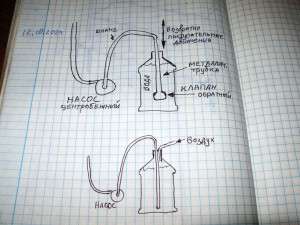 12.10.2024
ШЛАНГ
ВОЗВРАТНО
ПОСТУПАТЕЛЬНЫЕ
ДВИЖЕНИЯ
МЕТАЛЛИЧ.
ТРУБКА
ВОДА
КЛАПАН
ОБРАТНЫЙ
НАСОС
ЦЕНТРОБЕЖНЫЙ
ВОЗДУХ
НАСОС